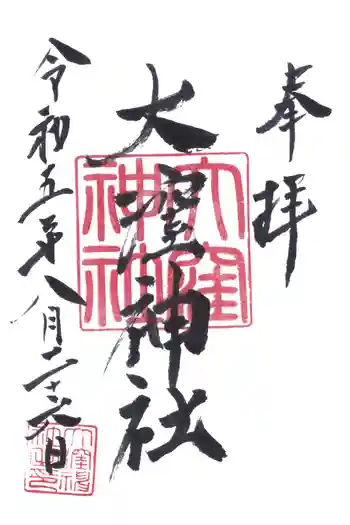 奉拝
大窪神社
令和五年八月二十六日
大窪
神社